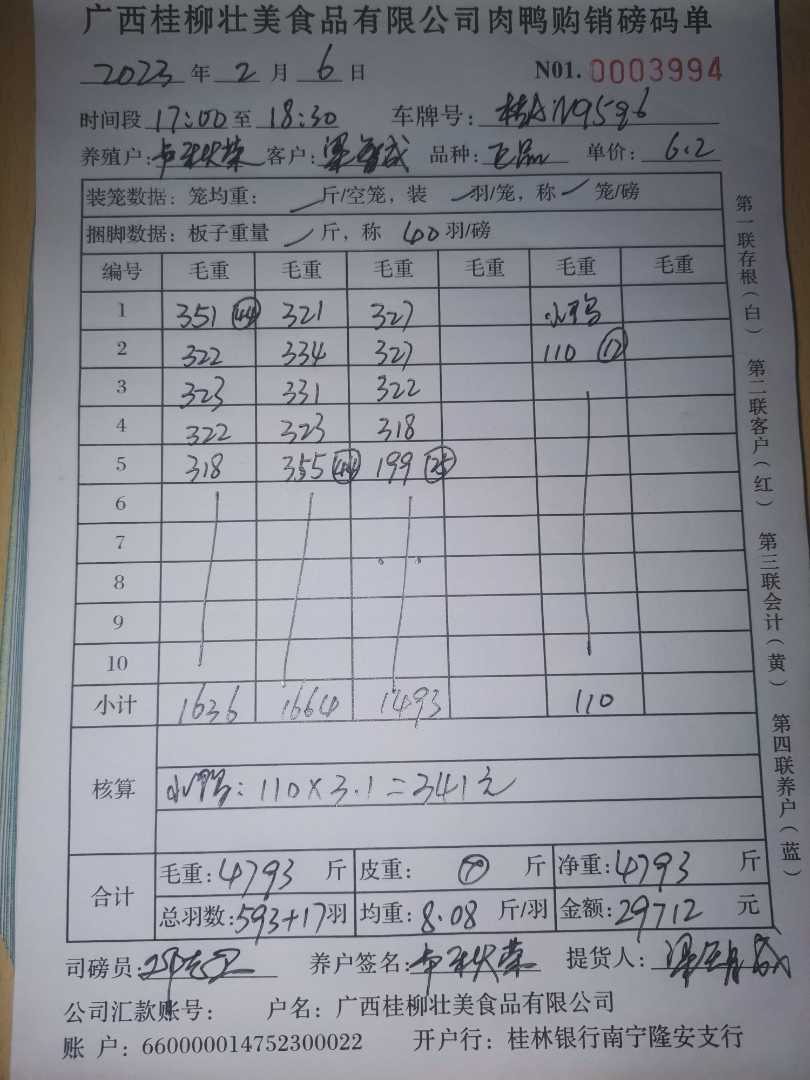 广西桂柳壮美食品有限公司肉鸭购销磅码单
2023 年 2 月 6 日 N01. 0003994
时间段 17:00 至 18:30 车牌号: 桂AN9596
养殖户: 卢秋荣 客户: 品种: 正品 单价: 6.2
装笼数据: 笼均重: 斤/空笼, 装 羽/笼, 称 笼/磅
捆脚数据: 板子重量 斤, 称 40 羽/磅
编号 毛重 毛重 毛重 毛重 毛重 毛重
1 351 (44) 321 327 小鸭
2 322 334 327 110 (12)
3 323 331 322
4 322 323 318
5 318 355 (44) 199 (25)
6
7
8
9
10
小计 1636 1664 1493 110
核算 小鸭: 110×3.1=341元
合计 毛重: 4793 斤 皮重: 斤 净重: 4793 斤
总羽数: 593+17 羽 均重: 8.08 斤/羽 金额: 29712 元
司磅员: 养户签名: 卢秋荣 提货人:
公司汇款账号: 户名: 广西桂柳壮美食品有限公司
账 户: 660000014752300022 开户行: 桂林银行南宁隆安支行
第一联存根(白) 第二联客户(红) 第三联会计(黄) 第四联养户(蓝)